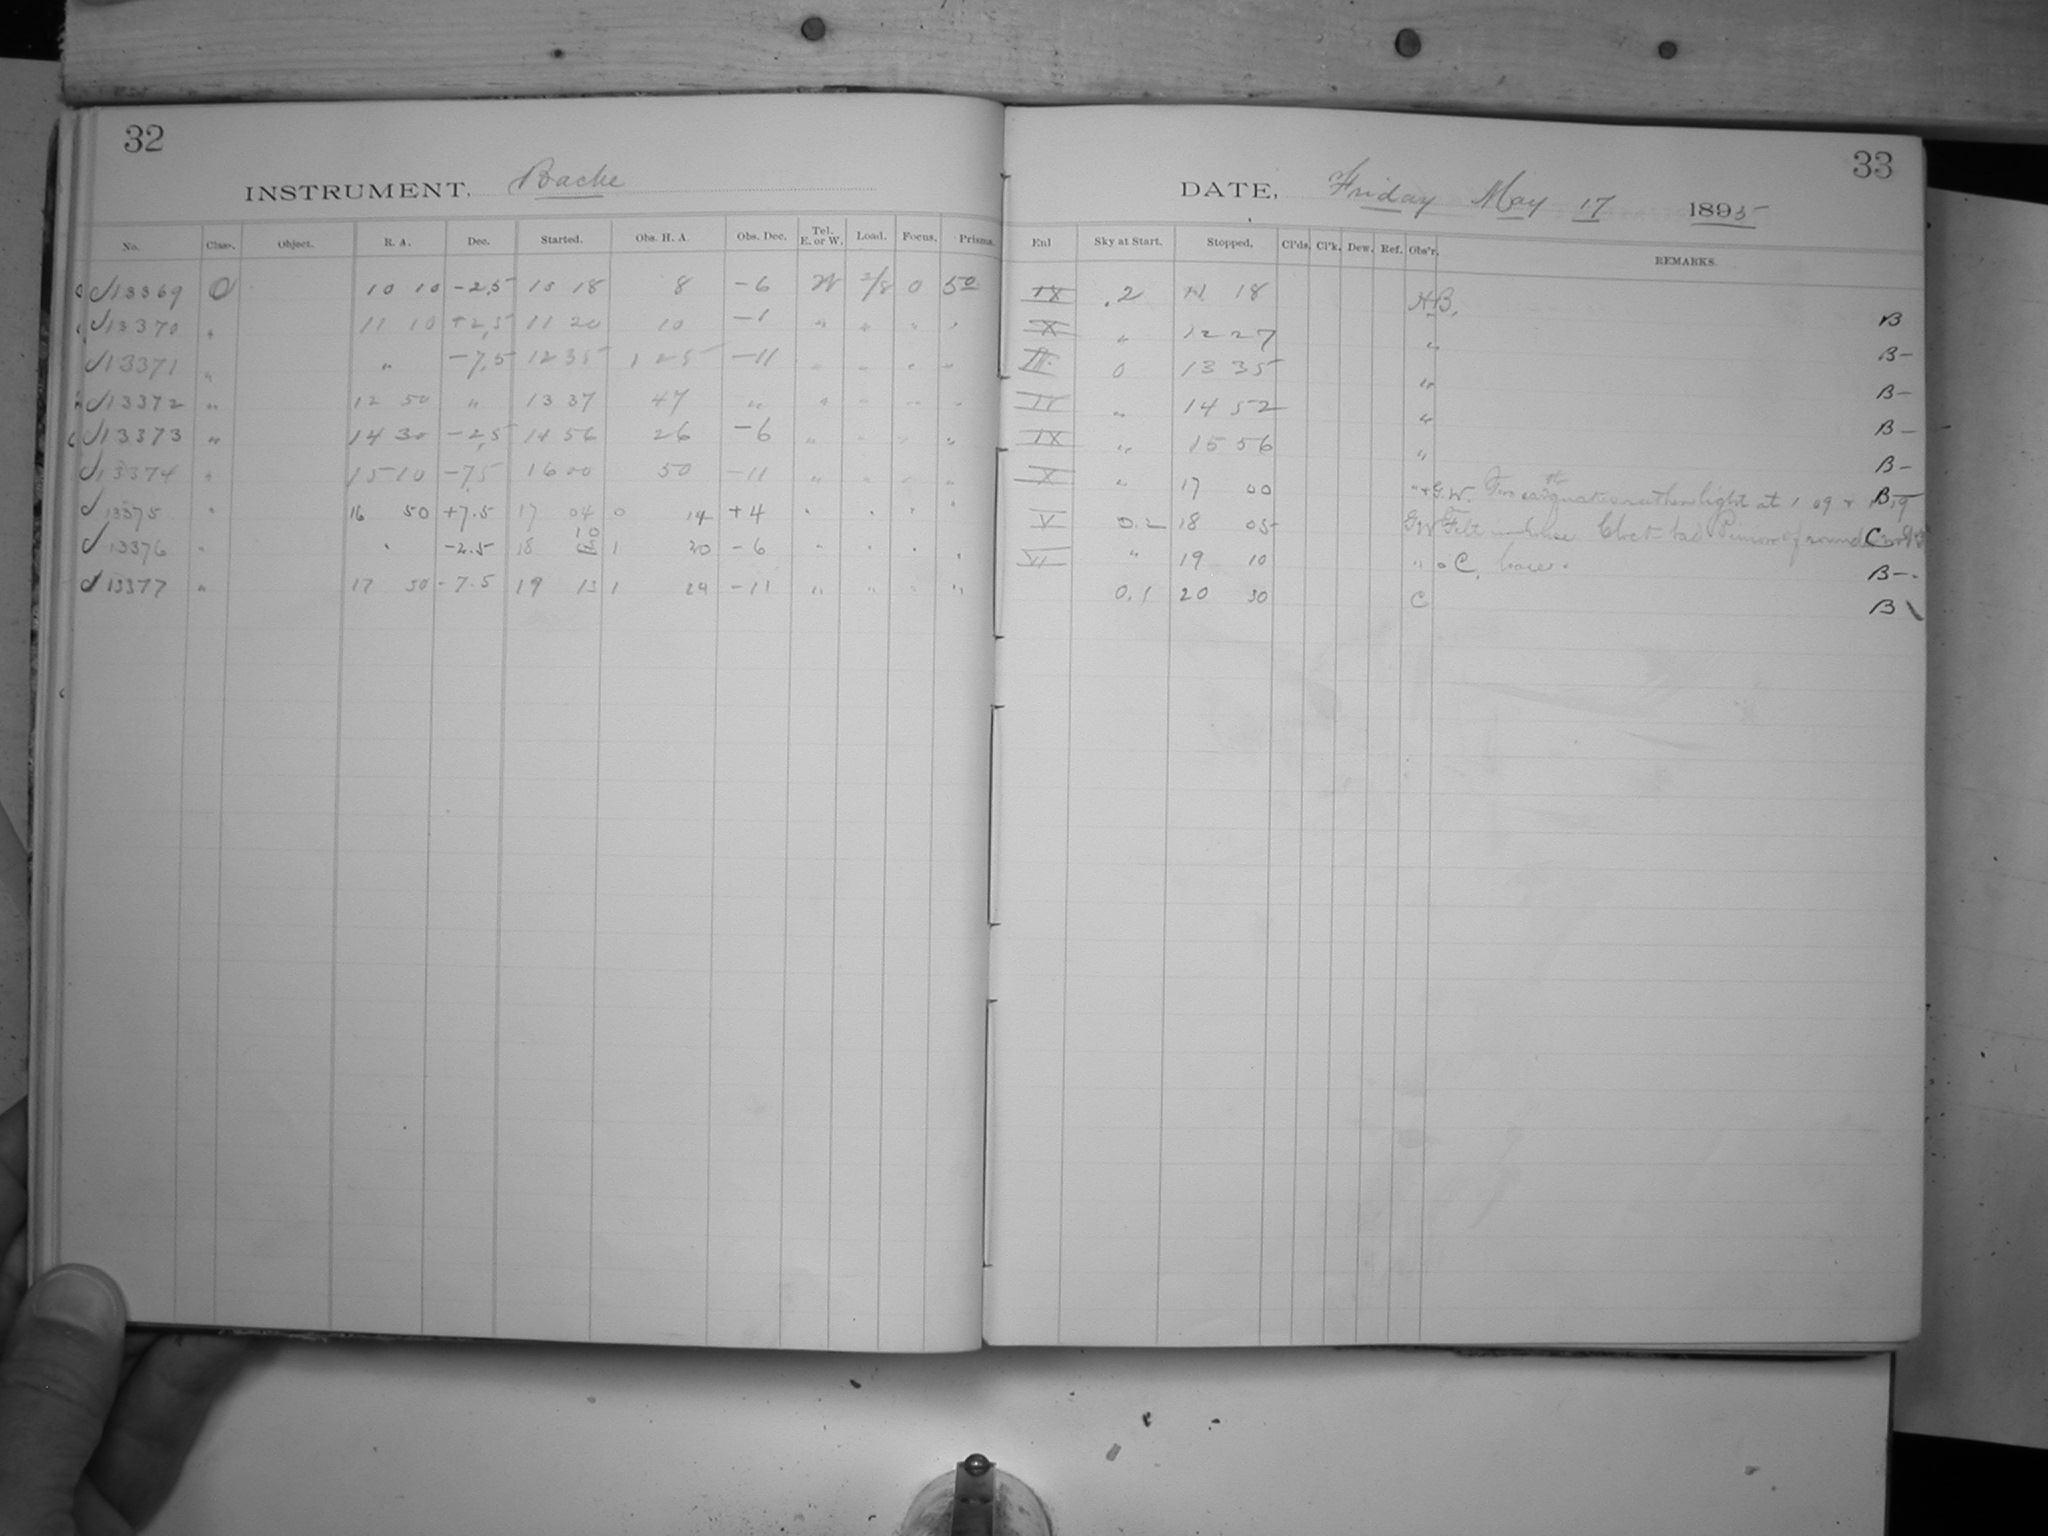 32
INSTRUMENT, Bache
No. Class. Object. R. A. Dec. Started. Obs. H. A. Obs. Dec. Tel. E. or W. Load. Focus. Prisms.
13369 O 10 10 -2.5 10 18 8 -6 W 2/8 0 50
13370 " 11 10 +2.5 11 20 10 -1 " " " "
13371 " " -7.5 12 35 1 25 -11 " " " "
13372 " 12 50 " 13 37 47 " " " " "
13373 " 14 30 -2.5 14 56 26 -6 " " " "
13374 " 15 10 -7.5 16 00 50 -11 " " " "
13375 " 16 50 +7.5 17 04 0 14 +4 " " " "
13376 " " -2.5 18 10 1 20 -6 " " " "
13377 " 17 50 -7.5 19 13 1 24 -11 " " " "
33
DATE, Friday May 17 1895
Enl Sky at Start. Stopped. Cl'ds. Cl'k. Dew. Ref. Obs'r. REMARKS.
IX .2 11 18 H.B. B
X " 12 27 " B-
0 13 35 " B-
" 14 52 " B-
IX " 15 56 " B-
X " 17 00 "+G.W. light at 1 09 + B
V 0.2 18 05 GW Felt in house Clock C
VI " 19 10 " C. B-
0.1 20 30 C B